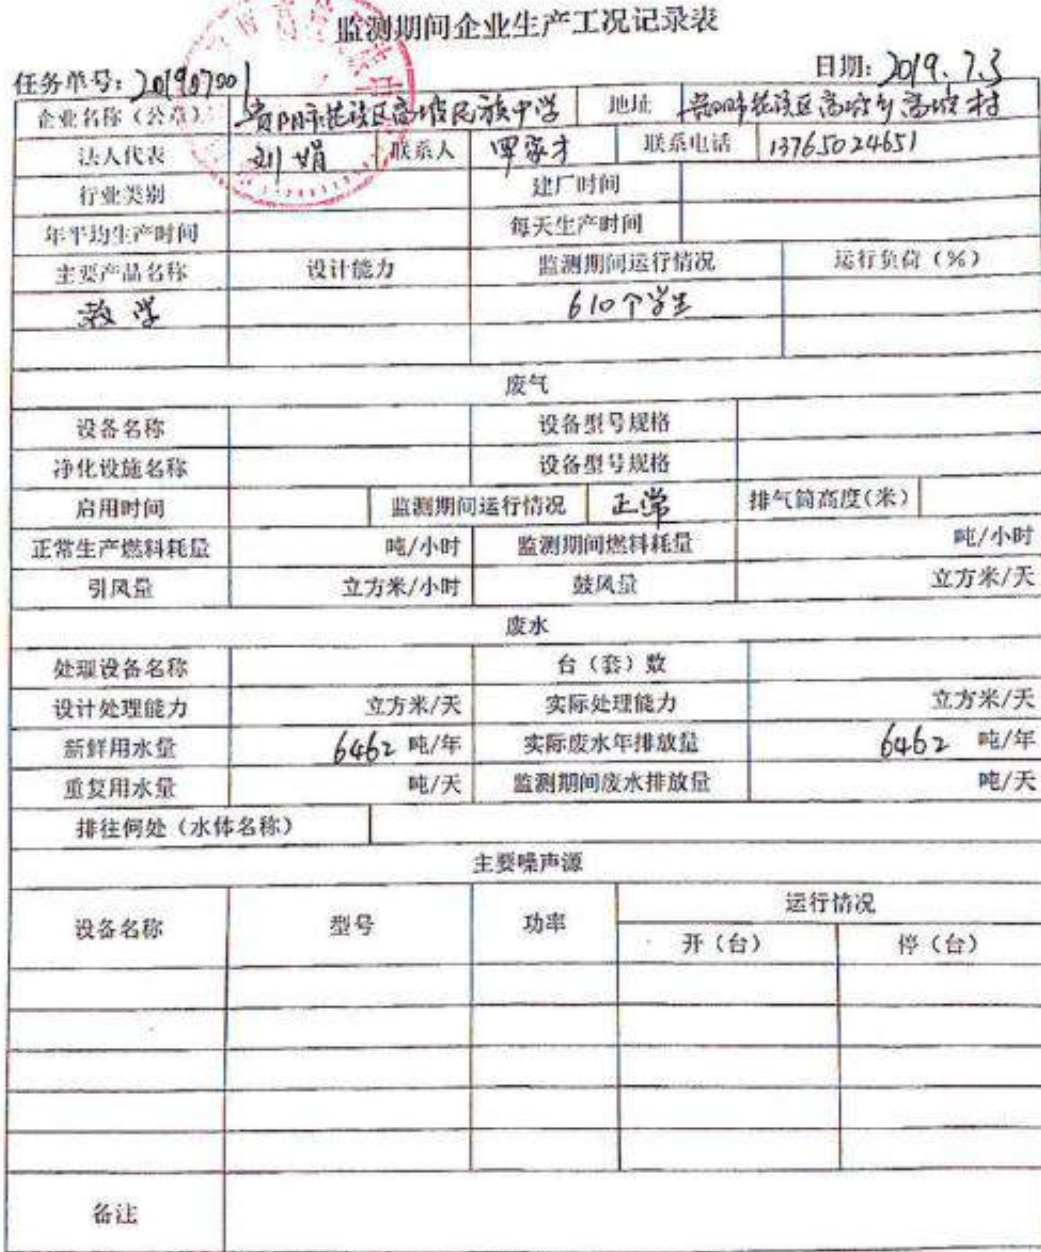 监测期间企业生产工况记录表
任务单号: 201907001 日期: 2019.7.3
企业名称（公章） 贵阳市花溪区高坡民族中学 地址 贵阳市花溪区高坡乡高坡村
法人代表 刘娟 联系人 罗家才 联系电话 13765024651
行业类别 建厂时间
年平均生产时间 每天生产时间
主要产品名称 设计能力 监测期间运行情况 运行负荷（%）
教学 610个学生
废气
设备名称 设备型号规格
净化设施名称 设备型号规格
启用时间 监测期间运行情况 正常 排气筒高度(米)
正常生产燃料耗量 吨/小时 监测期间燃料耗量 吨/小时
引风量 立方米/小时 鼓风量 立方米/天
废水
处理设备名称 台（套）数
设计处理能力 立方米/天 实际处理能力 立方米/天
新鲜用水量 6462 吨/年 实际废水年排放量 6462 吨/年
重复用水量 吨/天 监测期间废水排放量 吨/天
排往何处（水体名称）
主要噪声源
设备名称 型号 功率 运行情况
开（台） 停（台）
备注